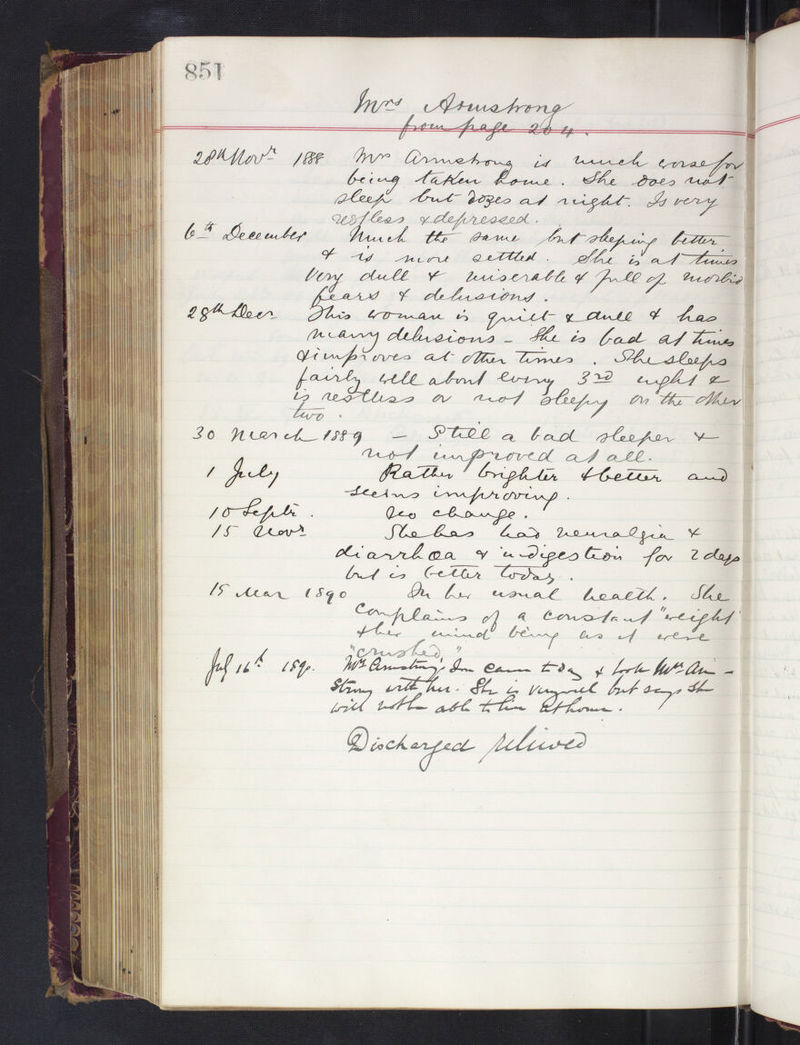 851
Mrs Armstrong
from page 204.
28th Novr 1888 Mrs Armstrong is much worse for
being taken home. She does not
sleep but dozes at night. Is very
restless & depressed.
6th December Much the same but sleeping better
& is more settled. She is at times
very dull & miserable & full of morbid
fears & delusions.
28th Decr This woman is quiet & dull & has
many delusions - She is bad at times
& improves at other times. She sleeps
fairly well about every 3rd night &
is restless or not sleepy on the other
two.
30 March 1889 - Still a bad sleeper &
not improved at all.
1 July Rather brighter & better and
seems improving.
10 Septr. No change.
15 Novr She has had neuralgia &
diarrhœa & indigestion for 2 days
but is better today.
15 Mar 1890 In her usual health. She
complains of a constant "weight"
& her mind being as it were
"crushed"
July 16th 1890. Mrs Armstrong's son came today & took Mrs Arm-
strong with her. She is very well but says she
will not be able to live at home.
Discharged relieved